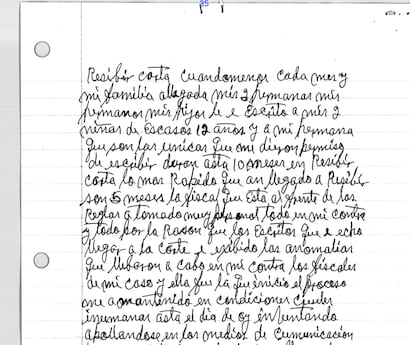 35
Resibir carta cuandomenos cada mes y
mi familia allegada mis 2 hermanas mis
hermanos mis hijos le e Escrito a mis 2
niñas de Escasos 12 años y a mi hermana
que son las unicas que mi dieron permiso
de escribir duran asta 10 meses en Resibir
carta lo mas Rapido que an llegado a Resibir
son 5 meses la fiscal que Esta al frente de las
Reglas a tomado muy personal todo en mi contra
y todo por la Rason que los Escritos que e echo
llegar a la corte e exibido las anomalias
que llibaron a cabo en mi contra los fiscales
de mi caso y ella fue la que inicio el proceso
me a mantenido en condiciones crueles
inumanas asta el dia de oy intentando
apollandose en los medios de Cumunicación